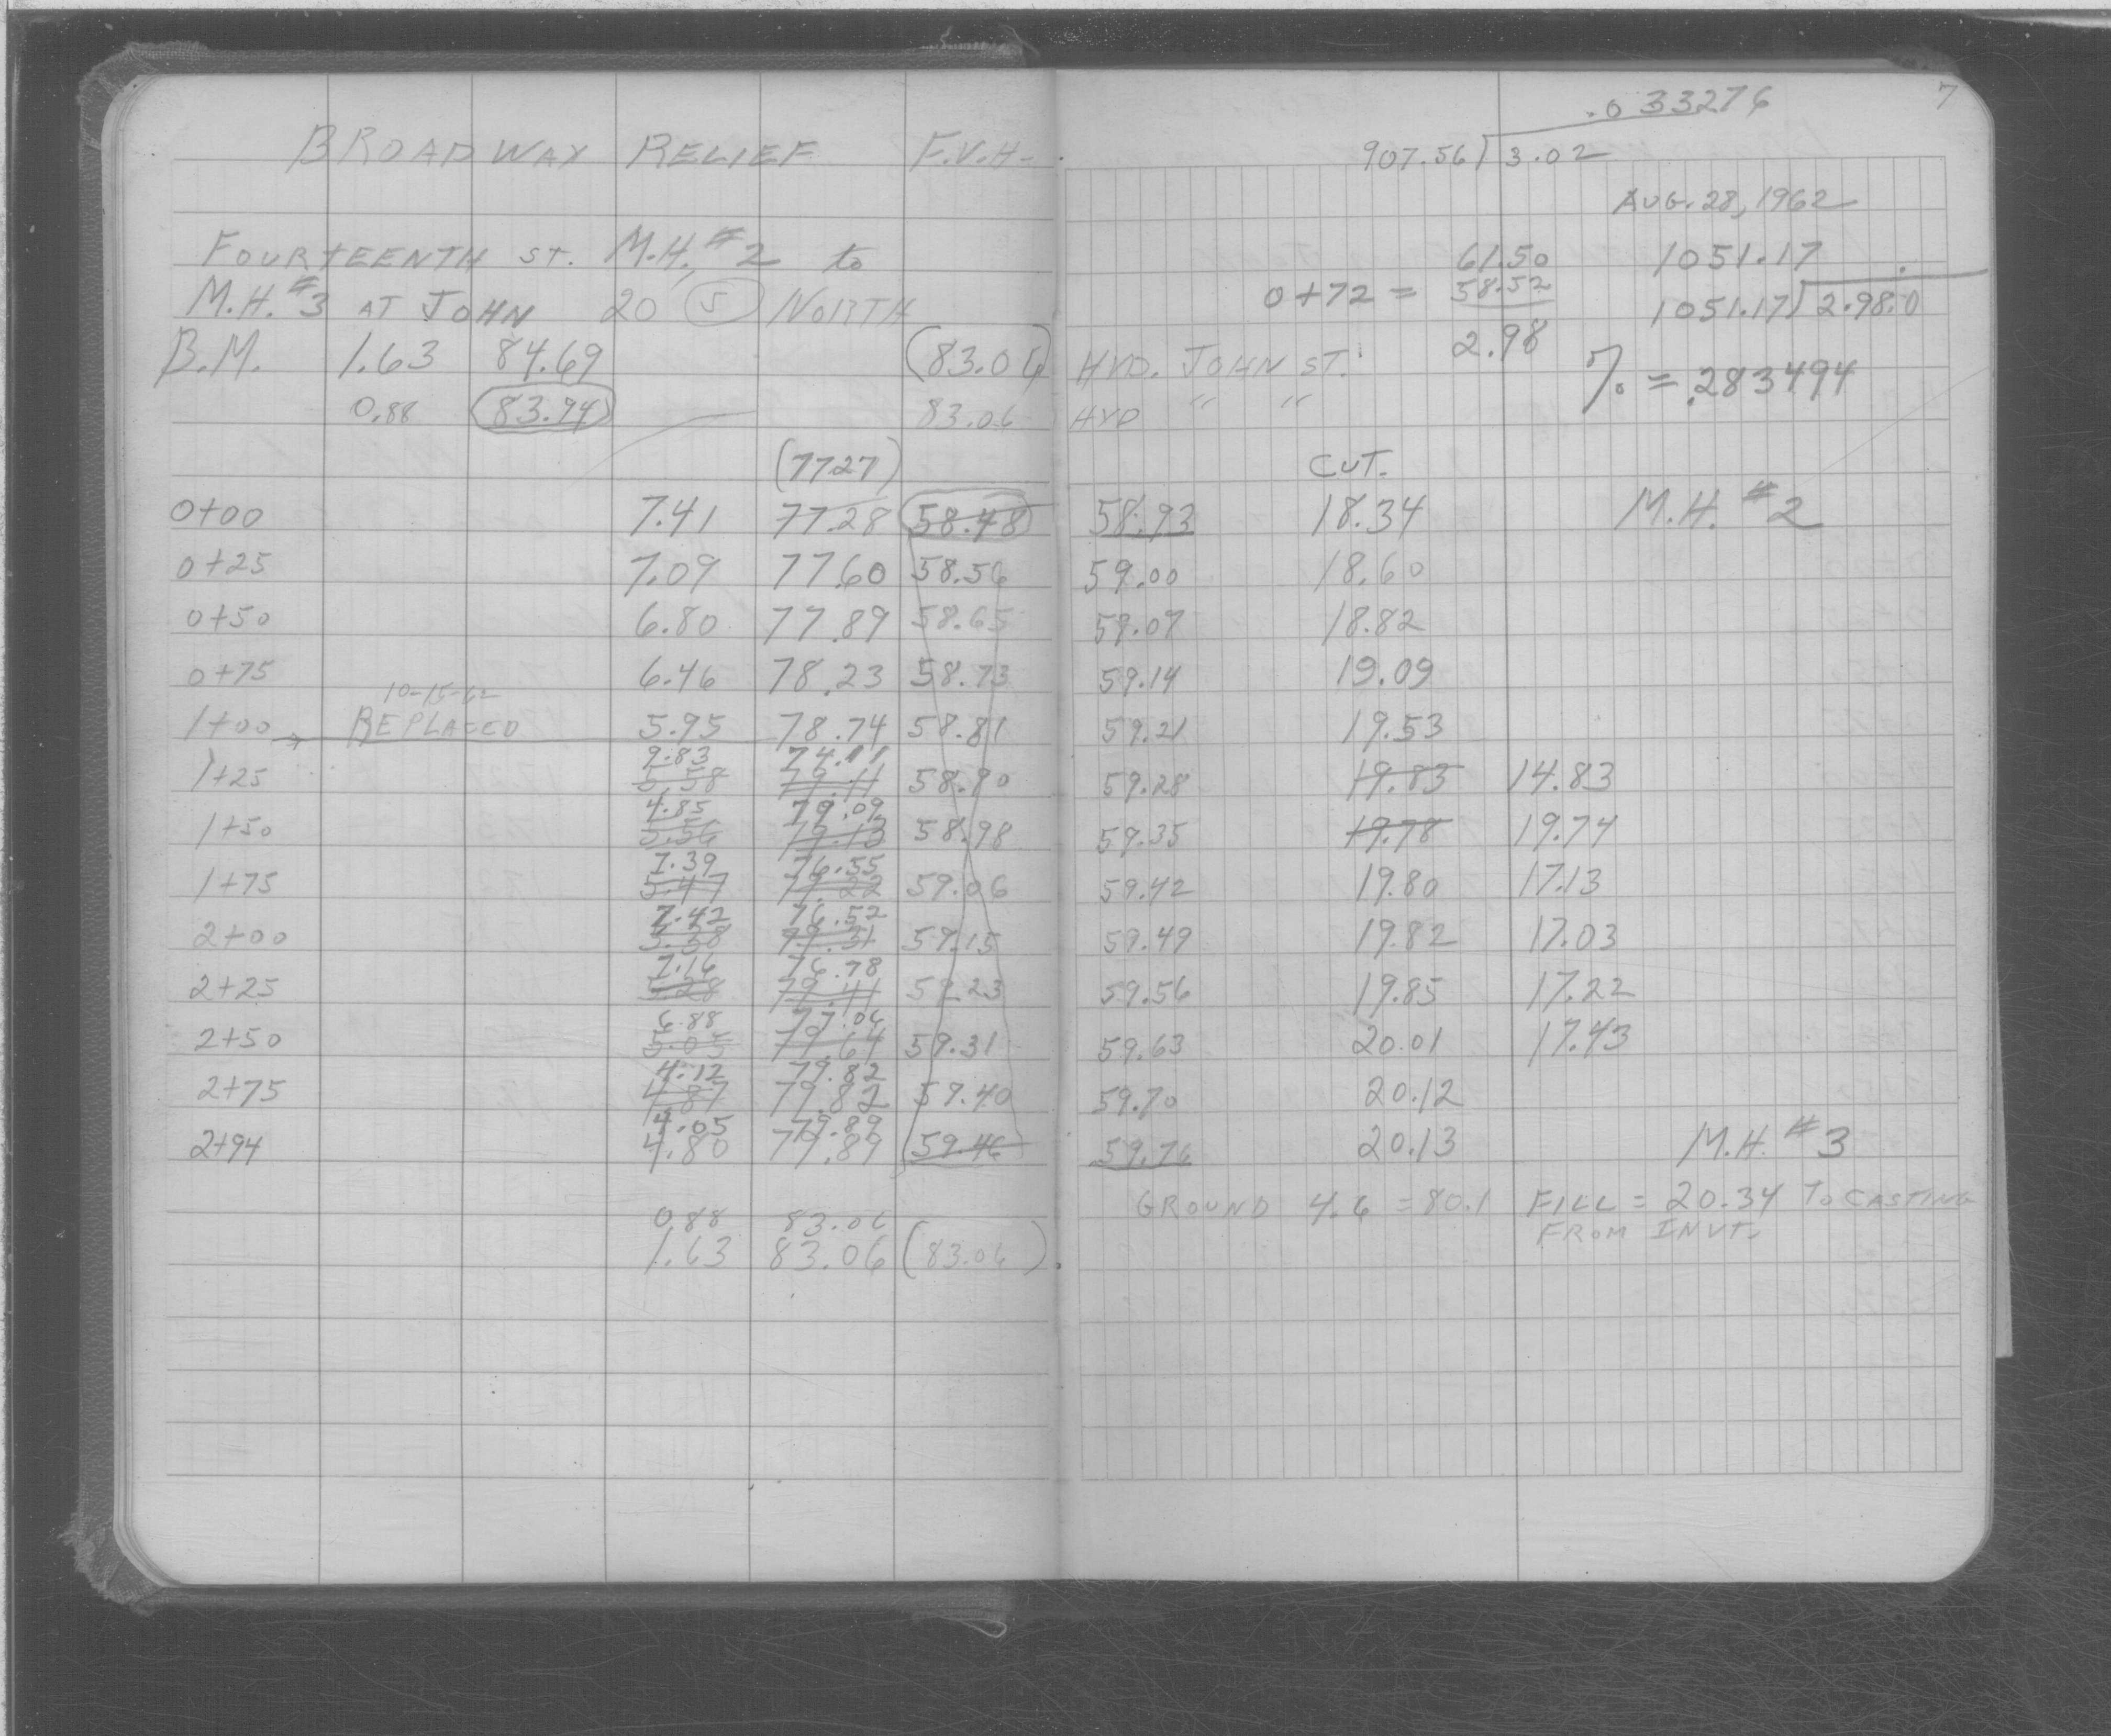 BROADWAY RELIEF F.V.H.
FOURTEENTH ST. M.H. #2 to
M.H. #3 AT JOHN 20 (5) NORTH
B.M. 1.63 84.69 (83.06)
0.88 (83.94) 83.06
(77.27)
0+00 7.41 77.28 58.48
0+25 7.09 77.60 58.56
0+50 6.80 77.89 58.65
0+75 6.46 78.23 58.73
10-15-62
1+00 → REPLACED 5.95 78.74 58.81
9.83 74.11
1+25 5.58 79.11 58.90
4.85 79.09
1+50 5.56 79.13 58.98
7.39 76.55
1+75 5.47 79.22 59.06
7.42 76.52
2+00 5.38 79.31 59.15
7.16 76.78
2+25 5.28 79.41 59.23
6.88 77.06
2+50 5.05 79.64 59.31
4.12 79.82
2+75 4.87 79.82 59.40
4.05 79.89
2+94 4.80 79.89 59.46
0.88 83.06
1.63 83.06 (83.06)
7
.033276
907.56 3.02
AUG. 28, 1962
61.50 1051.17
0+72 = 58.52 1051.17 2.98.0
2.98
HYD. JOHN ST. % = .283494
HYD " "
CUT.
58.93 18.34 M.H. #2
59.00 18.60
59.07 18.82
59.14 19.09
59.21 19.53
59.28 19.83 14.83
59.35 19.78 19.74
59.42 19.80 17.13
59.49 19.82 17.03
59.56 19.85 17.22
59.63 20.01 17.43
59.70 20.12
59.76 20.13 M.H. #3
GROUND 4.6 = 80.1 FILL = 20.34 TO CASTING
FROM INVT.